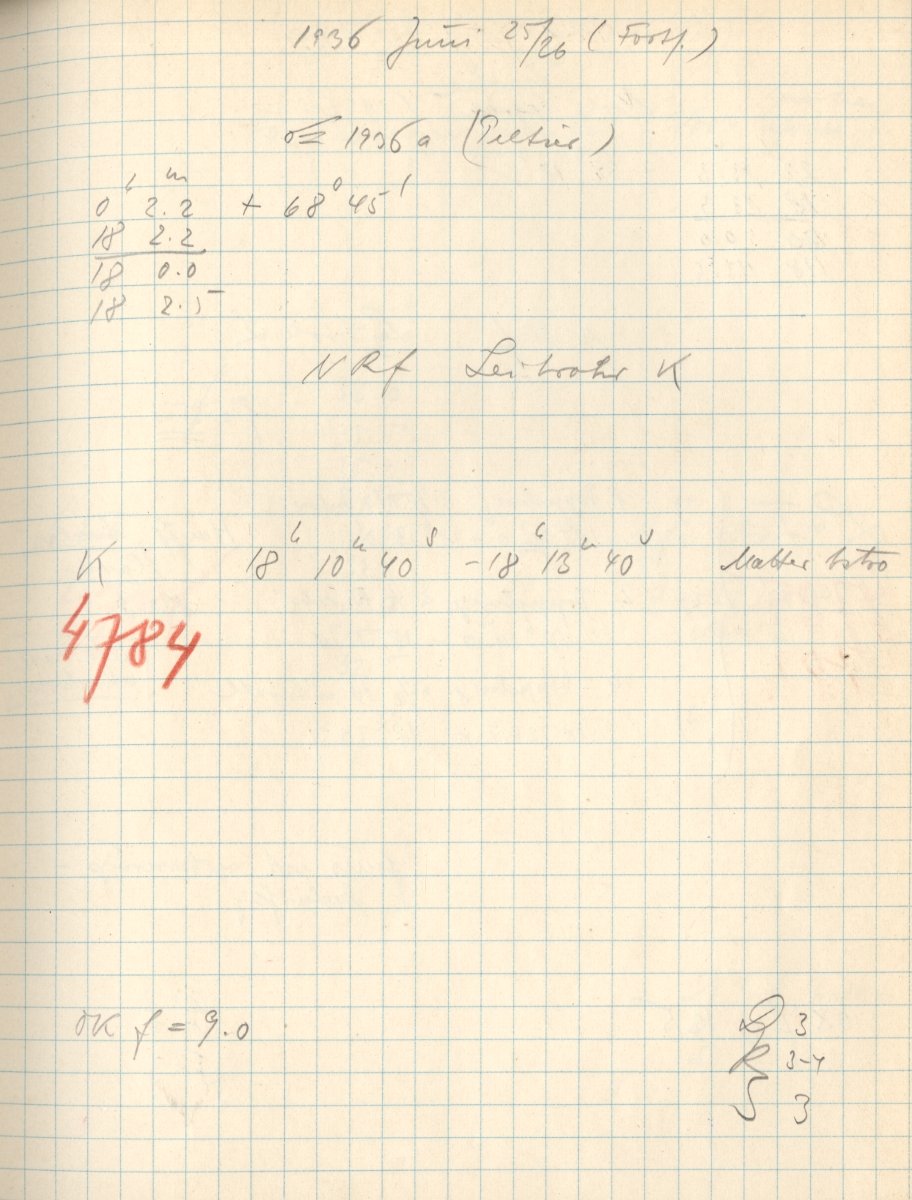 1936 Juni 25/26 (Forts.)
☄ 1936 a (Peltier)
0ʰ 2.2ᵐ + 68° 45'
18 2.2
18 0.0
18 2.5
NRf Leitrohr K
K 18ʰ 10ᵐ 40ˢ – 18ʰ 13ᵐ 40ˢ Matter
4784
f = 9.0
3
R 3-4
S 3